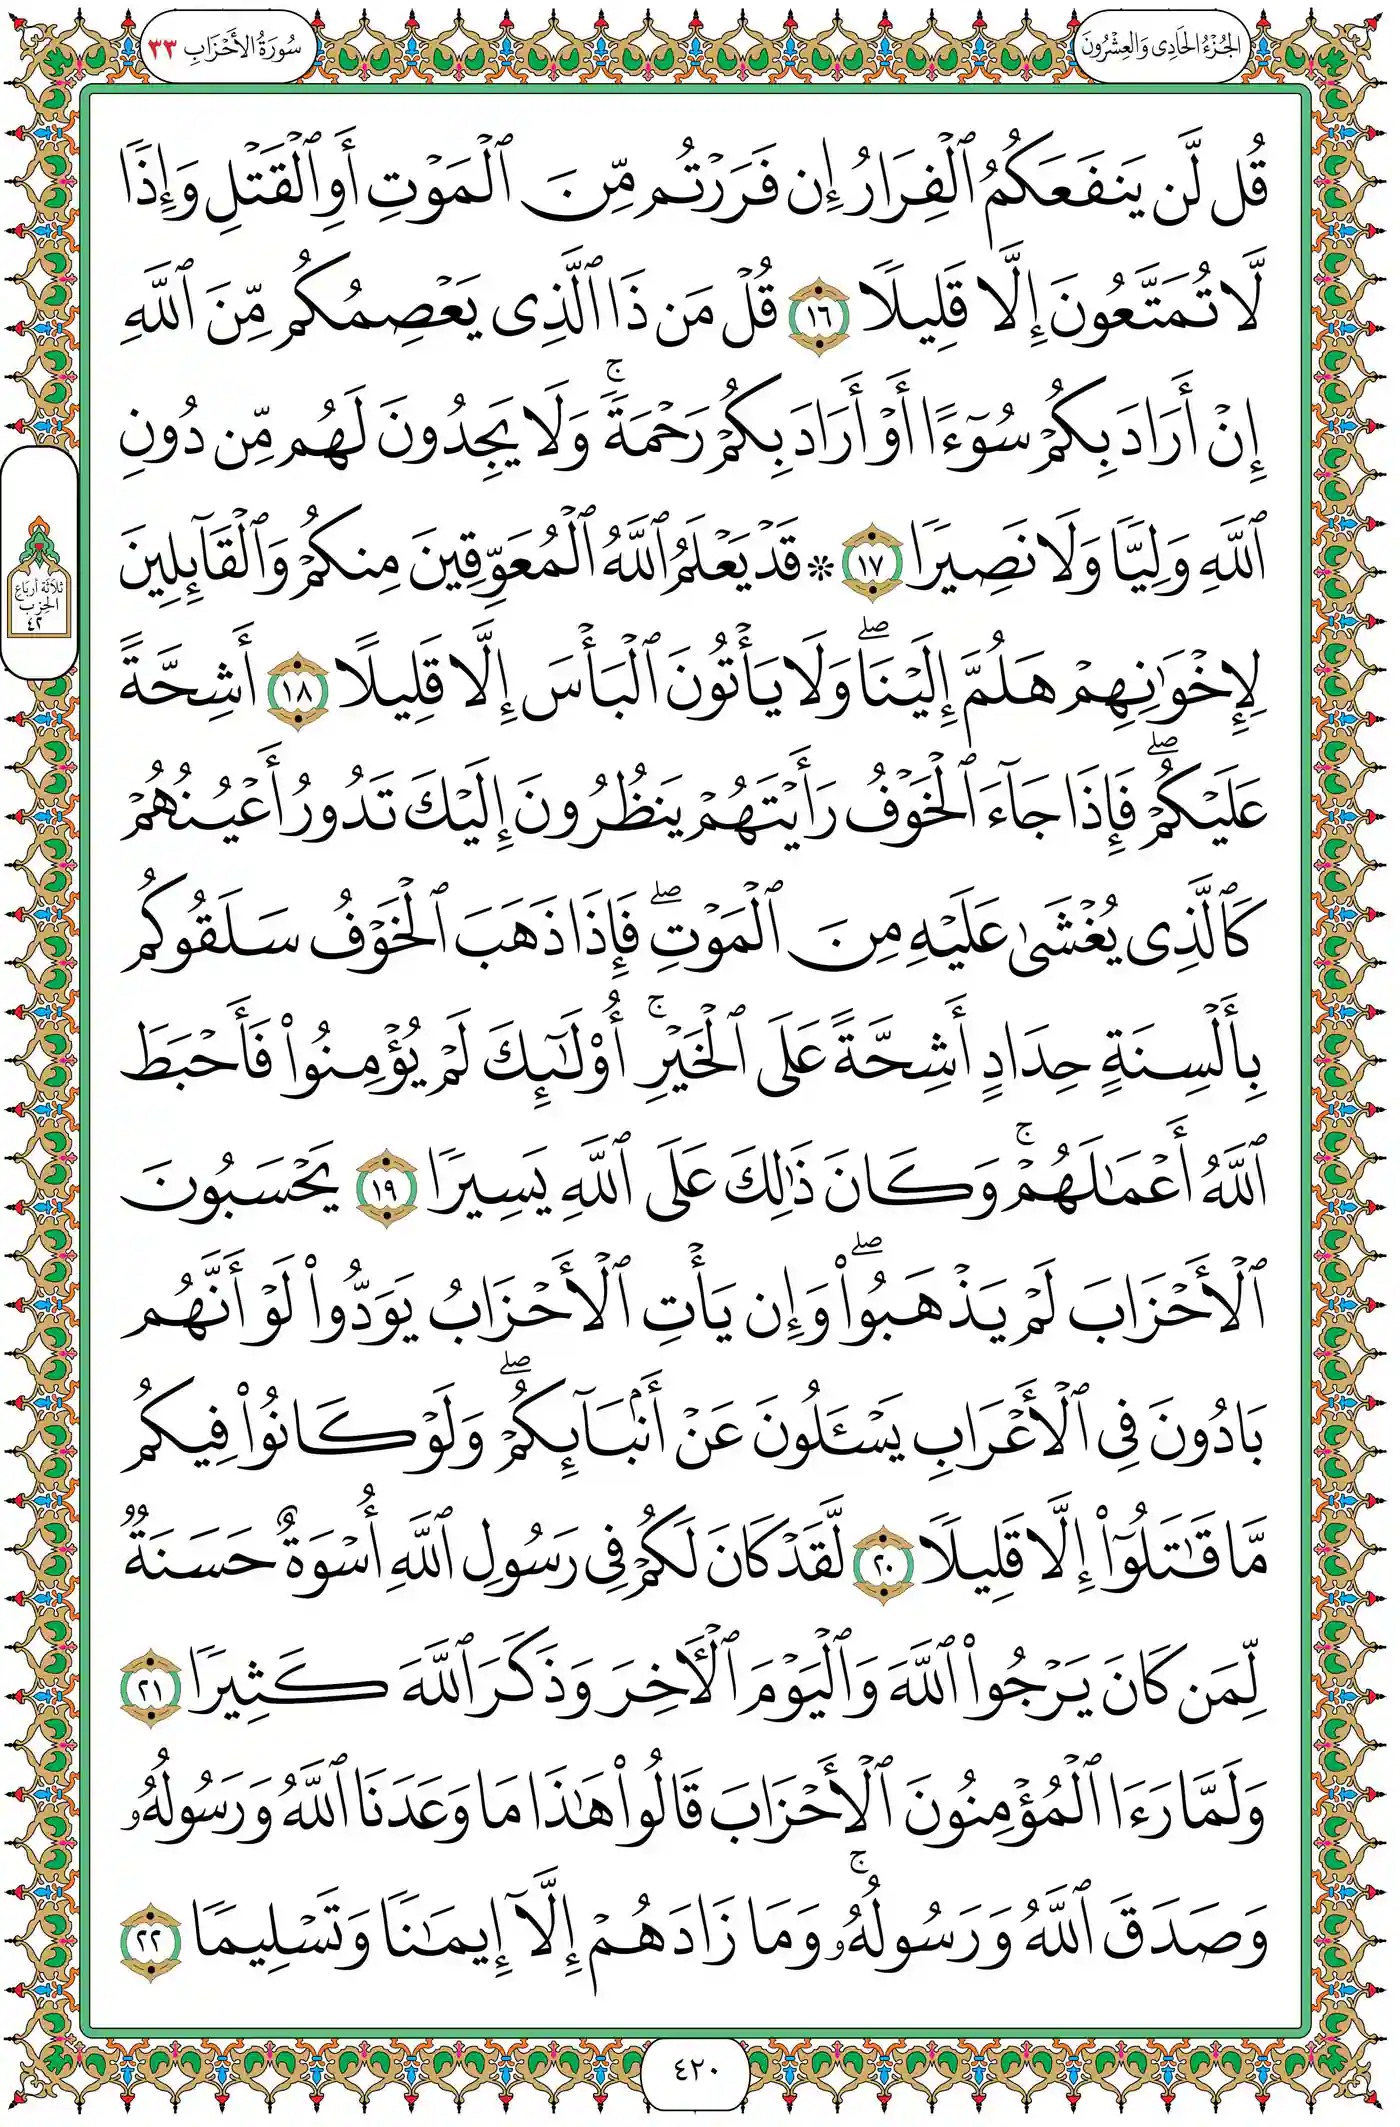 الجُزْءُ الحَادِى وَالعِشْرُونَ
سُورَةُ الأَحْزَابِ ٣٣
قُل لَّن يَنفَعَكُمُ ٱلْفِرَارُ إِن فَرَرْتُم مِّنَ ٱلْمَوْتِ أَوِ ٱلْقَتْلِ وَإِذًا
لَّا تُمَتَّعُونَ إِلَّا قَلِيلًا ١٦ قُلْ مَن ذَا ٱلَّذِى يَعْصِمُكُم مِّنَ ٱللَّهِ
إِنْ أَرَادَ بِكُمْ سُوٓءًا أَوْ أَرَادَ بِكُمْ رَحْمَةً ۚ وَلَا يَجِدُونَ لَهُم مِّن دُونِ
ٱللَّهِ وَلِيًّا وَلَا نَصِيرًا ١٧ * قَدْ يَعْلَمُ ٱللَّهُ ٱلْمُعَوِّقِينَ مِنكُمْ وَٱلْقَآئِلِينَ
لِإِخْوَٰنِهِمْ هَلُمَّ إِلَيْنَا ۖ وَلَا يَأْتُونَ ٱلْبَأْسَ إِلَّا قَلِيلًا ١٨ أَشِحَّةً
عَلَيْكُمْ ۖ فَإِذَا جَآءَ ٱلْخَوْفُ رَأَيْتَهُمْ يَنظُرُونَ إِلَيْكَ تَدُورُ أَعْيُنُهُمْ
كَٱلَّذِى يُغْشَىٰ عَلَيْهِ مِنَ ٱلْمَوْتِ ۖ فَإِذَا ذَهَبَ ٱلْخَوْفُ سَلَقُوكُم
بِأَلْسِنَةٍ حِدَادٍ أَشِحَّةً عَلَى ٱلْخَيْرِ ۚ أُو۟لَٰٓئِكَ لَمْ يُؤْمِنُوا۟ فَأَحْبَطَ
ٱللَّهُ أَعْمَٰلَهُمْ ۚ وَكَانَ ذَٰلِكَ عَلَى ٱللَّهِ يَسِيرًا ١٩ يَحْسَبُونَ
ٱلْأَحْزَابَ لَمْ يَذْهَبُوا۟ ۖ وَإِن يَأْتِ ٱلْأَحْزَابُ يَوَدُّوا۟ لَوْ أَنَّهُم
بَادُونَ فِى ٱلْأَعْرَابِ يَسْـَٔلُونَ عَنْ أَنۢبَآئِكُمْ ۖ وَلَوْ كَانُوا۟ فِيكُم
مَّا قَٰتَلُوٓا۟ إِلَّا قَلِيلًا ٢٠ لَّقَدْ كَانَ لَكُمْ فِى رَسُولِ ٱللَّهِ أُسْوَةٌ حَسَنَةٌ
لِّمَن كَانَ يَرْجُوا۟ ٱللَّهَ وَٱلْيَوْمَ ٱلْـَٔاخِرَ وَذَكَرَ ٱللَّهَ كَثِيرًا ٢١
وَلَمَّا رَءَا ٱلْمُؤْمِنُونَ ٱلْأَحْزَابَ قَالُوا۟ هَٰذَا مَا وَعَدَنَا ٱللَّهُ وَرَسُولُهُۥ
وَصَدَقَ ٱللَّهُ وَرَسُولُهُۥ ۚ وَمَا زَادَهُمْ إِلَّآ إِيمَٰنًا وَتَسْلِيمًا ٢٢
ثَلَاثَةُ أَرْبَاعِ
الحِزْبِ
٤٢
٤٢٠